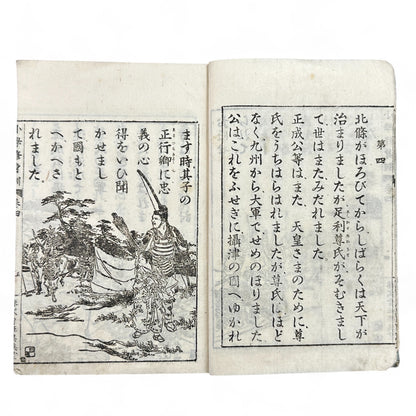 第四
北條がほろびてから、しばらくは天下が
治まりましたが足利尊氏がそむきまし
て世はまたみだれました
正成公等はまた 天皇さまのために尊
氏をうちはらはれましたが尊氏にほど
なく九州から大軍でせめのぼりました
公はこれをふせぎに攝津の國へゆかれ
ます時其子の
正行卿に忠
義の心
得をいひ聞
かせまし
て國もと
へかへさ
れました